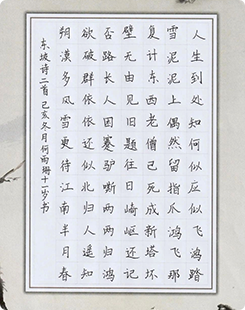 人生到处知何似应似飞鸿踏
雪泥泥上偶然留指爪鸿飞那
复计东西老僧已死成新塔坏
壁无由见旧题往日崎岖还记
否路长人困蹇驴嘶两两归鸿
欲破群依依还似北归人遥知
朔漠多风雪更待江南半月春
东坡诗二首己亥冬月何雨珊十一岁书